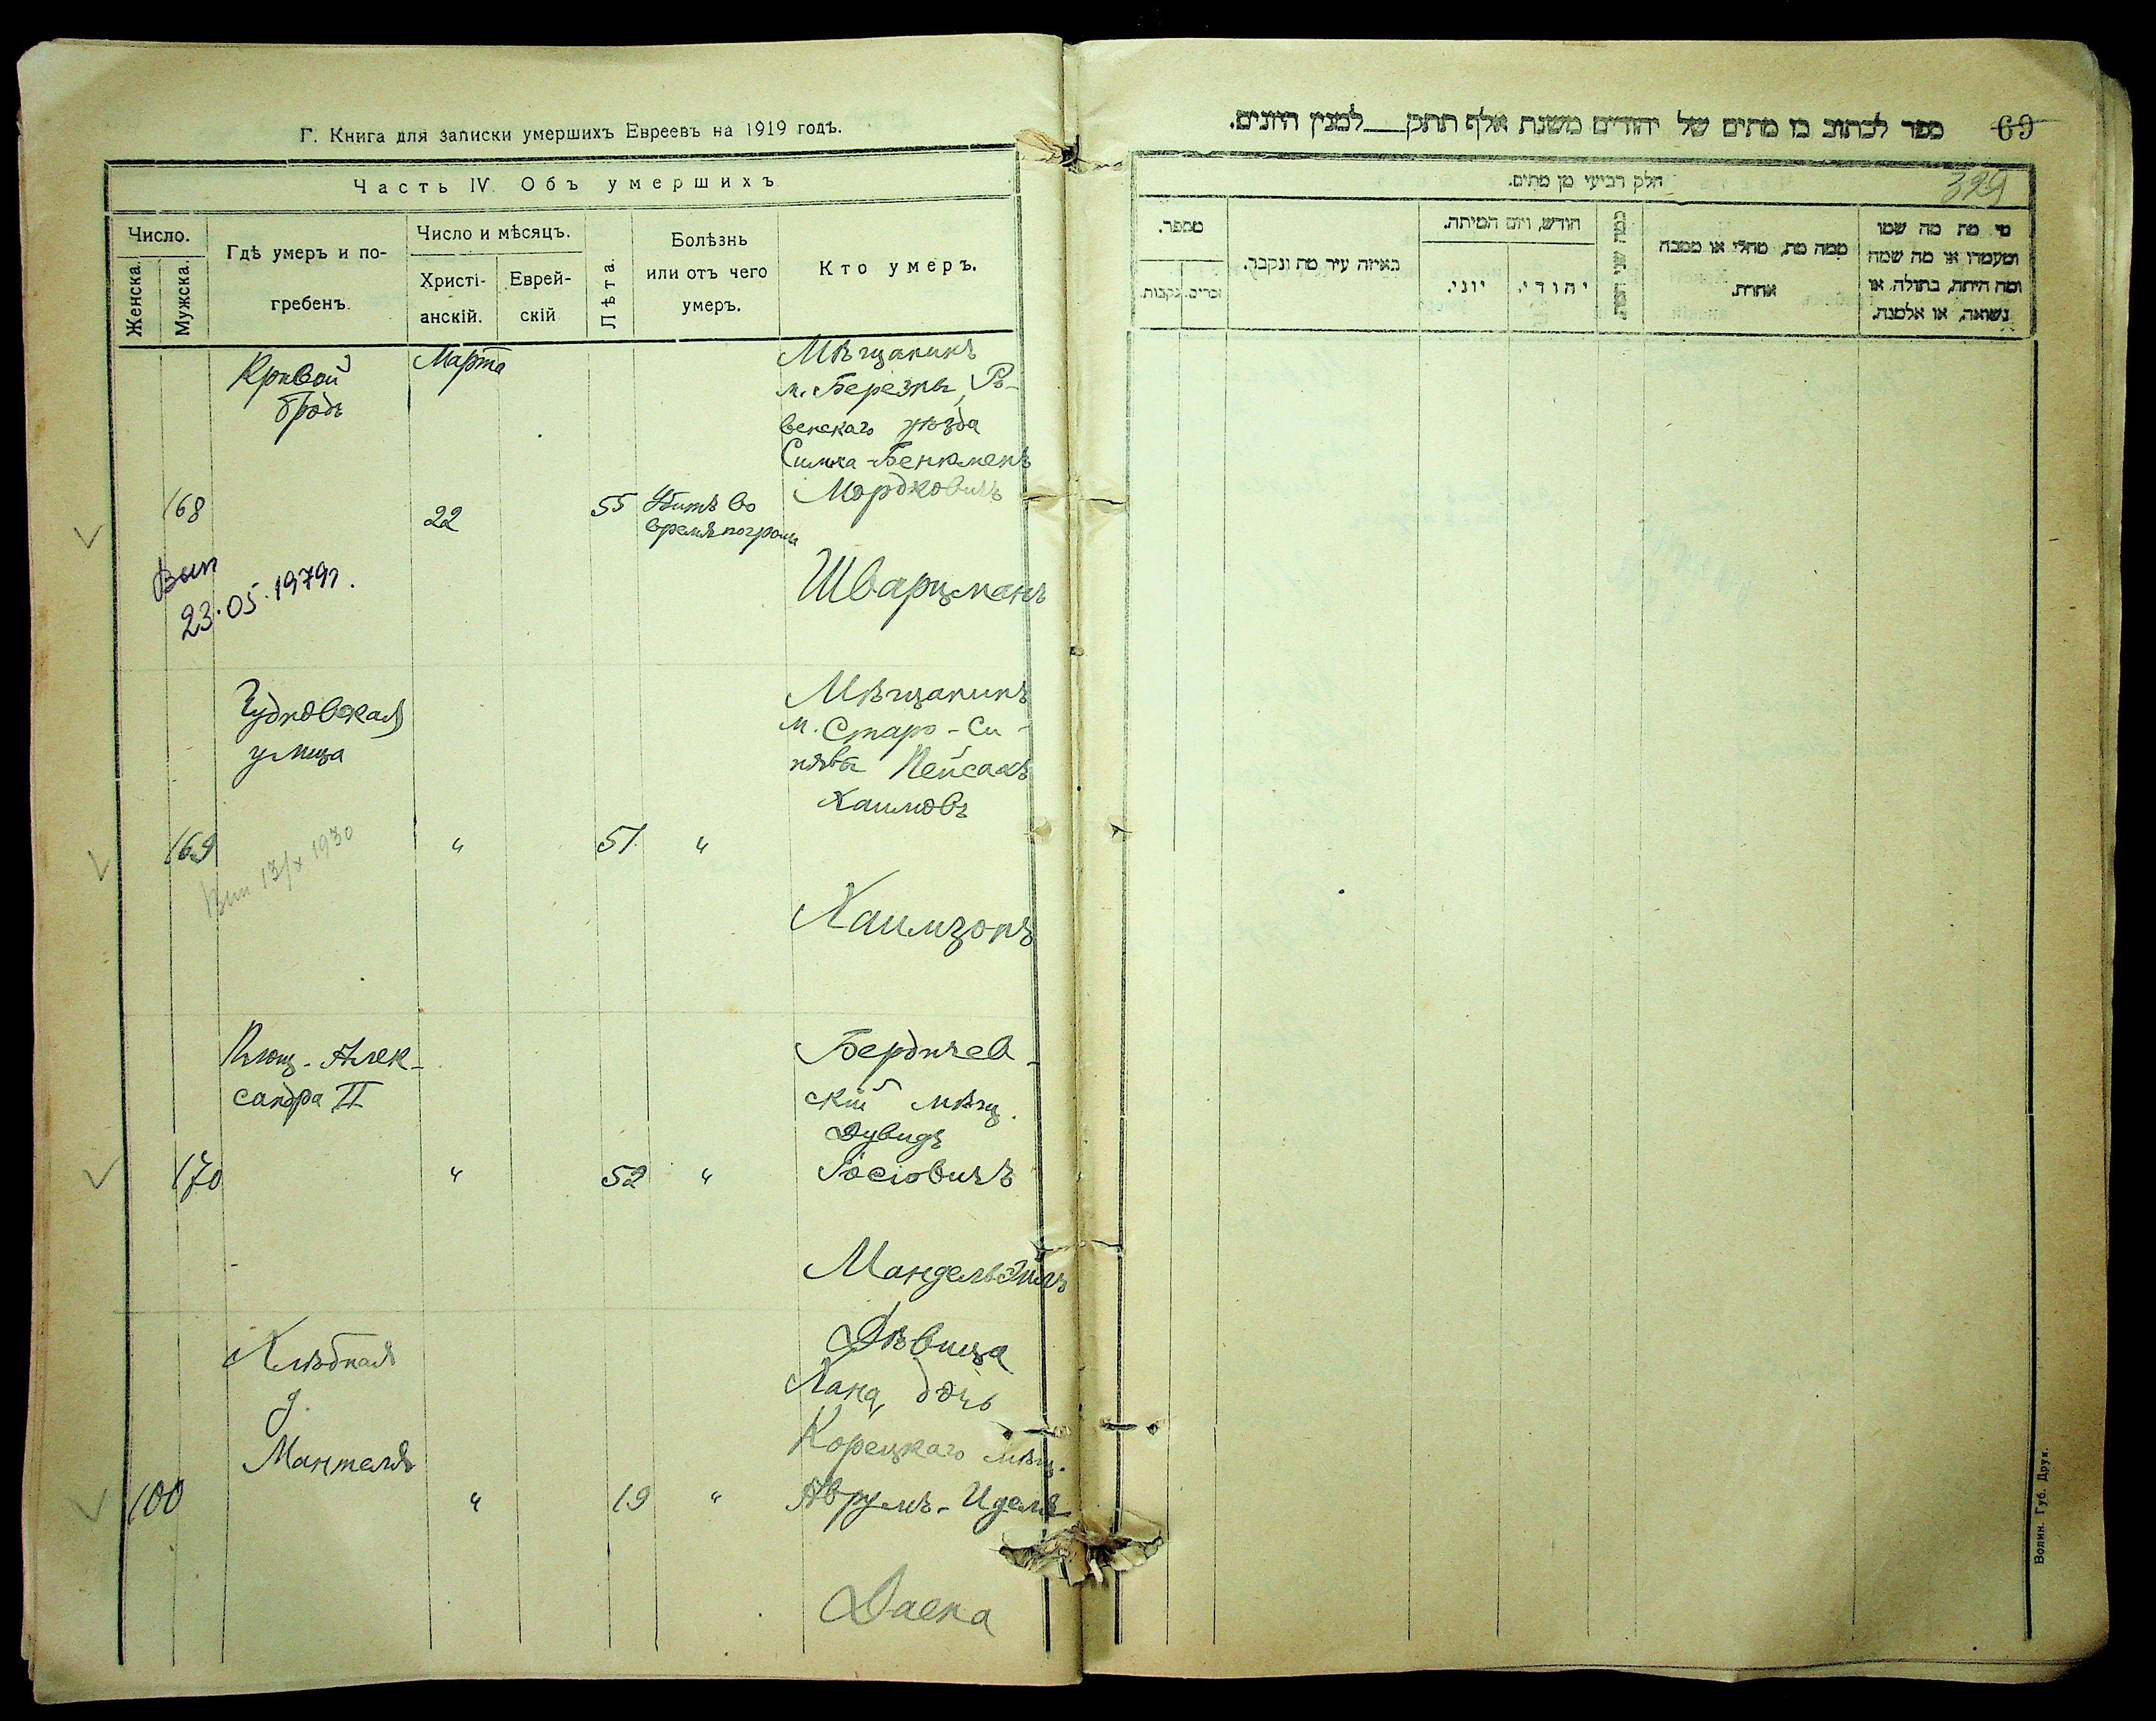 Г. Книга для записки умершихъ Евреевъ на 1919 годъ.
Часть IV Объ умершихъ
Число.
Женска.
Мужска.
Гдѣ умеръ и по-
гребенъ.
Число и мѣсяцъ.
Христі-
анскій.
Еврей-
скій
Лѣта.
Болѣзнь
или отъ чего
умеръ.
Кто умеръ.
168
Кривой
бродъ
Марта
22
55
Убитъ во
время погрома
Мѣщанинъ
м. Березны, Ро-
венскаго уѣзда
Симха-Бенименъ
Мордковичъ
Шварцманъ
Вып
23.05.1979г.
169
Чудновская
улица
"
51
"
Мѣщанинъ
м. Старо-Си-
нявы Пейсахъ
Хаимовъ
Хаимзонъ
Вып 13/х 1930
170
Площ. Алек-
сандра II
"
52
"
Бердичев-
скій мѣщ.
Дувидъ
Іосіовичъ
Мандельбаумъ
100
Хлѣбная
д.
Мантеля
"
19
"
Дѣвица
Хана, дочь
Корецкаго мѣщ.
Аврумъ-Иделя
Даена
69
ספר לכתוב בו מתים של יהודים משנת אלף תתק___למנין היונים.
329
חלק רביעי מן מתים.
מספר.
נקבות.
זכרים.
באיזה עיר מת ונקבר.
חודש, ויום המיתה.
יוני.
יהודי.
כמה שני המת
ממה מת, מחלי או מסבה
אחרת.
מי מת מה שמו
ומעמדו או מה שמה
ומה היתה, בתולה, או
נשואה, או אלמנה.
Волин. Губ. Друк.